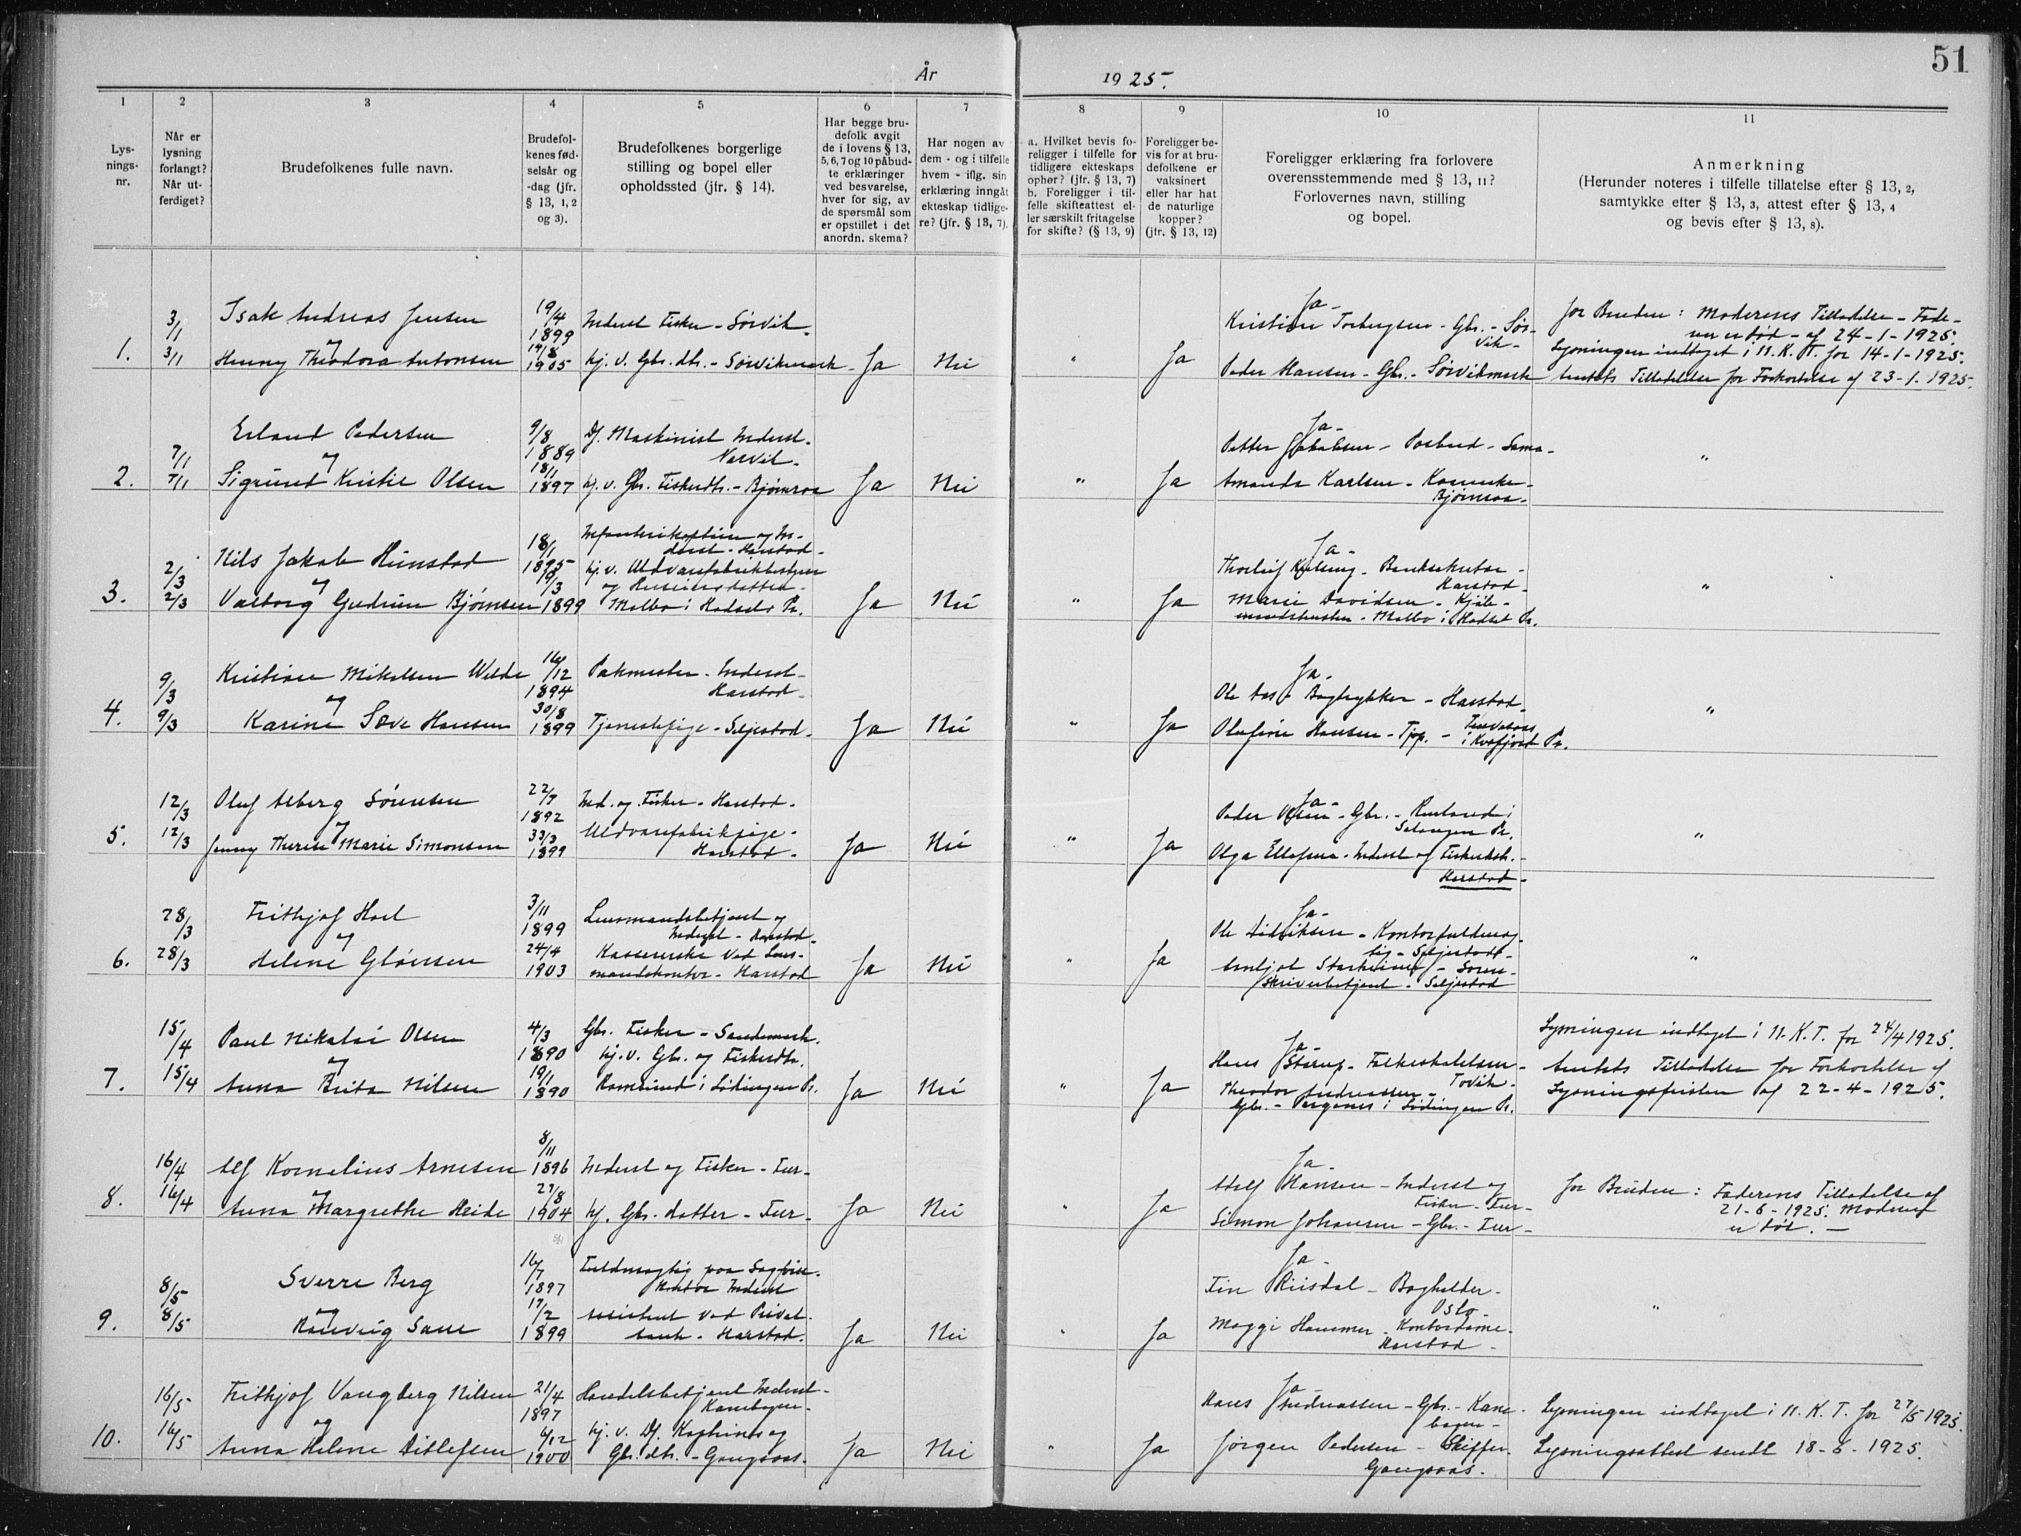 51
År 1925.
1 2 3 4 5 6 7 8 9 10 11
Lys-
nings-
nr.
Når er
lysning
forlangt?
Når ut-
ferdiget?
Brudefolkenes fulle navn.
Brudefol-
kenes fød-
selsår og
-dag (jfr.
§ 13, 1, 2
og 3).
Brudefolkenes borgerlige
stilling og bopel eller
opholdssted (jfr. § 14).
Har begge bru-
defolk avgit
de i lovens § 13,
5, 6, 7 og 10 påbud-
te erklæringer
ved besvarelse,
hver for sig, av
de spørsmål som
er opstillet i det
anordn. skema?
Har nogen av
dem - og i tilfelle
hvem - iflg. sin
erklæring inngåt
ekteskap tidlige-
re? (jfr. § 13, 7).
a. Hvilket bevis fo-
religger i tilfelle for
tidligere ekteskaps
ophør? (jfr. § 13, 7)
b. Foreligger i til-
felle skifteattest el-
ler særskilt fritagelse
for skifte? (§ 13, 9)
Foreligger be-
vis for at bru-
defolkene er
vaksinert
eller har hat
de naturlige
kopper?
(jfr. § 13, 12)
Foreligger erklæring fra forlovere
overensstemmende med § 13, 11?
Forlovernes navn, stilling
og bopel.
Anmerkning
(Herunder noteres i tilfelle tillatelse efter § 13, 2,
samtykke efter § 13, 3, attest efter § 13, 4
og bevis efter § 13, 8).
1.
3/1
3/1
Isak Andreas Jensen
og
Henny Theodora Antonsen
19/4
1899
1905
Inderst Fisker - Sørvik
hj. v. Gbr. dtr. - Sørvikmark
Ja
Nei
"
Ja
Ja -
Kristian Torbergsen - Gbr. - Sør-
vik -
Peder Hansen - Gbr. - Sørvikmark
for Bruden: Moderens Tilladelse - Fade-
ren er død - af 24-1-1925.
Lysningen indtaget i N.K.T. for 14-1-1925.
Amtets Tilladelse for Forkortelse af 23-1-1925.
2.
7/1
7/1
Erland Pedersen
og
Sigrund Kristie Olsen
9/8
1889
18/1
1897
Df. Maskinist Inderst -
Narvik -
hj. v. Gbr. Fiskerdtr. - Bjørnraa
Ja
Nei
"
Ja
Ja -
Petter Jakobsen - Postbud - Sama -
Amanda Karlsen -
Bjørnraa -
"
3.
2/3
2/3
Nils Jakob Hunstad
og
Valborg Gudrun Bjørnsen
18/1
1895
9/3
1899
Infanterikaptein og In-
derst - Harstad -
hj. v. Uldvarefabrikbestyrer
og
Melbo i Hadsel Pr.
Ja
Nei
"
Ja
Ja -
Thorleif - Banksekretær -
Harstad -
Marie Davidsen - Kjøb-
mandshustru - Melbo i Hadsel Pr.
"
4.
9/3
9/3
Kristian Mikelsen Wilde
og
Karine Sove Hansen
16/12
1894
30/8
1899
Pakmester - Inderst -
Harstad -
Tjenestepige - Seljestad -
Ja
Nei
"
Ja
Ja -
Ole Aas - Bogtrykker - Harstad -
Olufine Hansen - Tjp. -
i Kvæfjord Pr.
"
5.
12/3
12/3
Oluf Alberg Sørensen
og
Jenny Therese Marie Simonsen
22/7
1892
1899
Ind. og Fisker - Harstad -
Uldvarefabrikpige -
Harstad -
Ja
Nei
"
Ja
Ja -
Peder Olsen - Gbr. - i
Salangen Pr.
Olga Ellefsen - Inderst og
Harstad -
"
6.
28/3
28/3
Frithjof Hoel
og
Helene Glønsen
3/11
1899
24/4
1903
Lensmandsbetjent og
Inderst - Harstad -
Kassererske ved Lens-
mandskontor - Harstad
Ja
Nei
"
Ja
Ja -
Ole Didriksen - Kontorfuldmæg-
tig - Seljestad -
Arnljot - Soren-
skriverbetjent - Seljestad
"
7.
15/4
15/4
Paul Nikolai Olsen
og
Anna Berta Nilsen
4/3
1890
19/1
1890
Gbr. Fisker - Sandemark.
hj. v. Gbr. og Fiskerdtr.
Ramsund i Lødingen Pr.
Ja
Nei
"
Ja
Ja -
Hans Storup - Folkeskolelærer -
Tovik -
Theodor Andreassen -
Gbr. - i Lødingen Pr.
Lysningen indtaget i N.K.T. for 24/4 1925.
Amtets Tilladelse for Forkortelse af
Lysningsfristen af 22-4-1925.
8.
16/4
16/4
Alf Kornelius Arnesen
og
Anna Margrethe Heide
8/11
1896
27/8
1904
Inderst og Fisker - Fur -
hj. Gbr. datter - Fur -
Ja
Nei
"
Ja
Ja -
Adolf Hansen - Inderst og
Fisker - Fur -
Simon Johansen - Gbr. - Fur -
for Bruden: Faderens Tilladelse af
21-6-1925. Moderen
er død. -
9.
8/5
8/5
Sverre Berg
og
Ranveig Sane
16/7
1897
17/2
1899
Fuldmægtig paa Sagfører-
kontor Inderst
Assistent ved Privat-
bank - Harstad.
Ja
Nei
"
Ja
Ja -
Finn Riisdal - Bogholder -
Oslo -
Maggi Hammer - Kontordame -
Harstad -
"
10.
16/5
16/5
Frithjof Vangberg Nilsen
og
Anna Helene Ditlefsen
21/4
1897
6/12
1900
Handelsbetjent Inderst -
Kanebogen -
hj. v. Df. Kaptein og
Gbr. dtr. - Gangsaas -
Ja
Nei
"
Ja
Ja -
Hans Andreassen - Gbr. - Kane-
bogen -
Jørgen Pedersen - Skipper -
Gangsaas -
Lysningen indtaget i N.K.T. for 27/5 1925.
Lysningsattest sendt 18-6-1925.